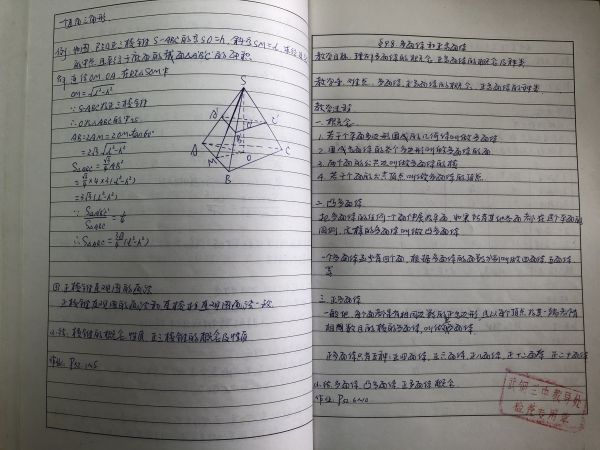 直角三角形
例. 如图, P502正三棱锥 S-ABC的高SO=h, 斜高SM=l,
的中点且平行于底面的截面△A'B'C'的面积
解 连结OM, OA, 在Rt△SOM中
OM=√l²-h²
∵S-ABC是正三棱锥
∴O是△ABC的中心
AB=2AM=2OM tan60°
=2√3 √l²-h²
S△ABC=√3/4 AB²
=√3/4×4×3(l²-h²)
=3√3(l²-h²)
∵ S△A'B'C'/S△ABC=1/4
S
A'
C'
A
M
O
C
B
四. 正棱锥直观图的画法
正棱锥直观图的画法和直棱柱直观图画法一致
小结: 棱锥的概念, 性质, 正三棱锥的概念及性质
作业: P52 1~5
§9.8 多面体和正多面体
教学目标: 理解多面体的概念, 正多面体的概念及种类
教学重、难点: 多面体, 正多面体的概念, 正多面体的种类
教学过程:
一. 概念
1. 若干个平面多边形围成的几何体叫做多面体
2. 围成多面体的各个多边形叫做多面体的面
3. 两个面的公共边叫做多面体的棱
4. 若干个面的公共顶点叫做多面体的顶点
二. 凸多面体
把多面体的任何一个面伸展为平面, 如果所有其他各面都在这个平面的
同侧, 这样的多面体叫做凸多面体
一个多面体至少有四个面, 根据多面体的面数分别叫做四面体, 五面体,
等
三. 正多面体
一般地, 每个面都是有相同边数的正多边形, 且以每个顶点为其一端都有
相同数目的棱的多面体, 叫做正多面体.
正多面体只有五种: 正四面体, 正六面体, 正八面体, 正十二面体, 正二十面体
小结: 多面体, 凸多面体, 正多面体概念
作业: P52 6~10
教导处
检查专用章